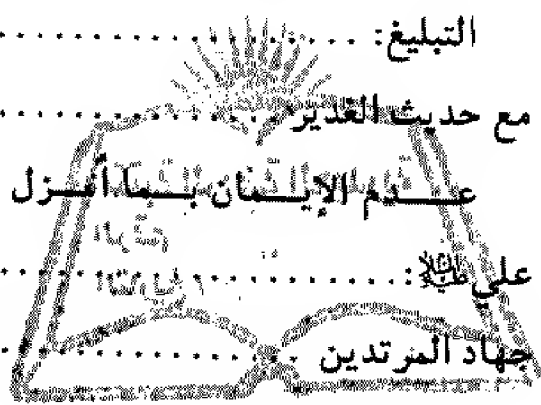 التبليغ: ....................
مع حديث الغدير ....................
عـدم الإيـمان بـما أنـزل
علي عليه السلام: ....................
جهاد المرتدين ....................